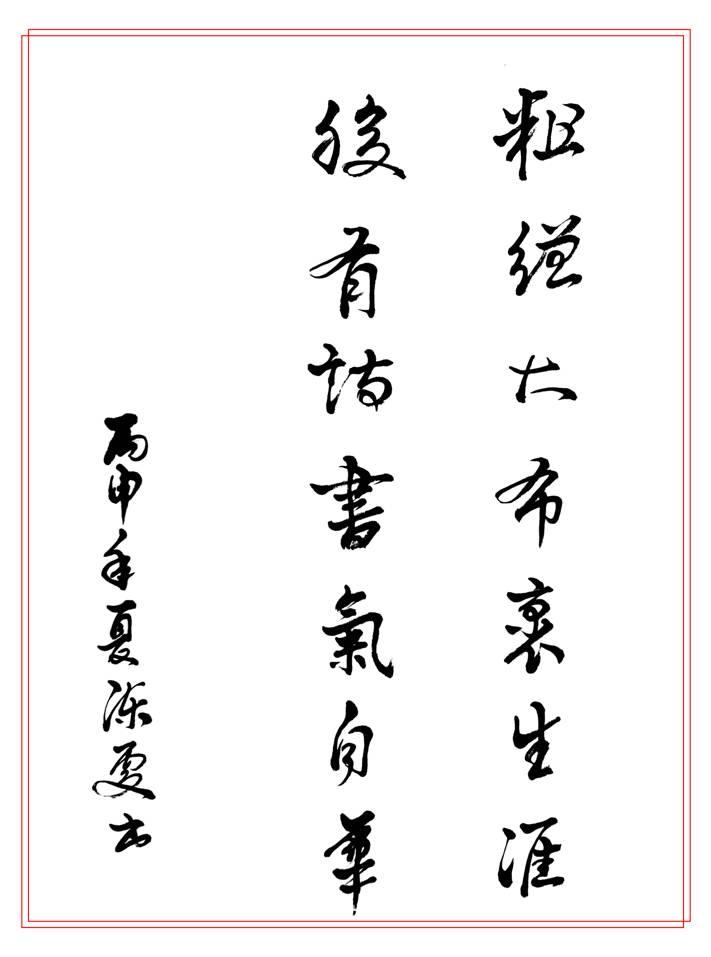 粗繒大布裹生涯
腹有詩書氣自華
丙申年夏书